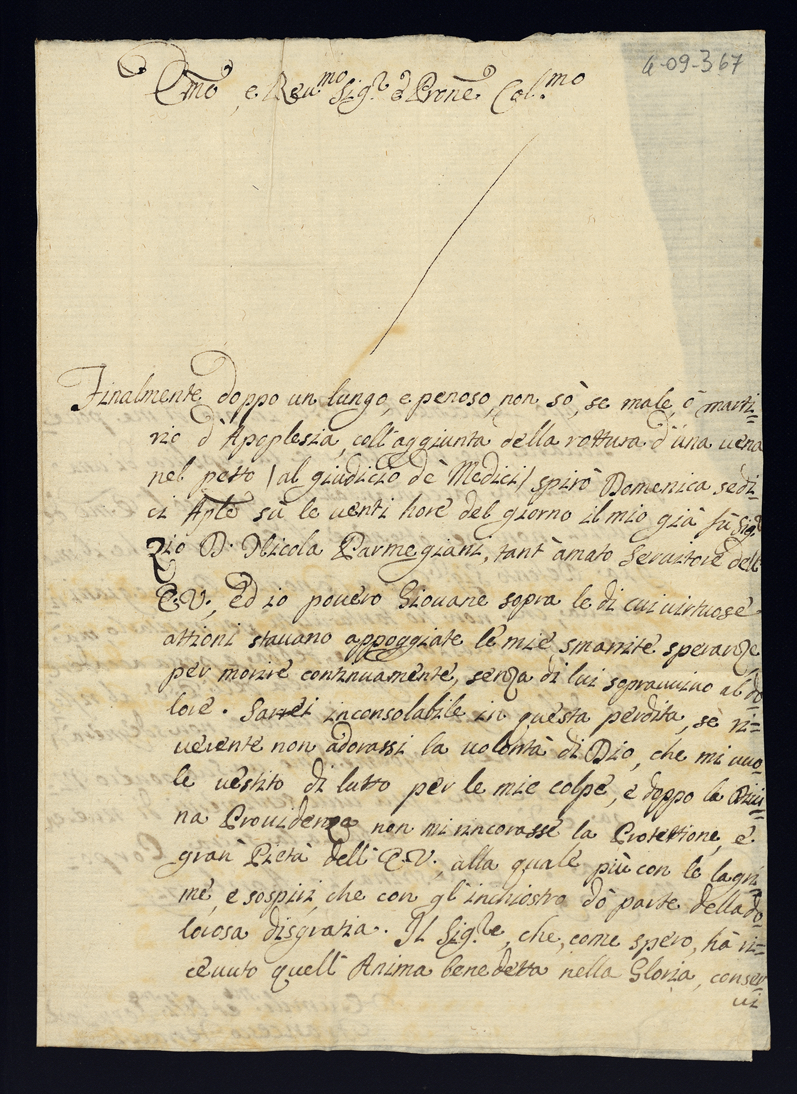 4-09-367
Emo, e Reu.mo Sig.re e Prone Col.mo
Finalmente doppo un lungo, e penoso, non sò, se male, ò marti=
rio d'Apoplesia, coll'aggiunta della rottura d'una vena
nel petto / al giudicio de Medici / spirò Domenica sedi=
ci Aple sù le venti hore del giorno il mio già fù Sig.r
Zio D. Nicola Parmegiani, tant'amato Servitore dell'
E.V., ed io povero Giovane sopra le di cui virtuose
attioni stavano appoggiate le mie smarrite speranze,
per morire continuamente, senza di lui sopravivo al do
lore. Sarrei inconsolabile in questa perdita, se ri=
verente non adorassi la volontà di Dio, che mi vuo=
le vestito di lutto per le mie colpe, e doppo la Divi=
na Providenza non mi rincorasse la Protettione, e
gran Pietà dell'E.V., alla quale più con le lagri=
me, e sospiri, che con gl'inchiostro dò parte della do=
lorosa disgratia. Il Sig.re, che, come spero, hà ri=
cevuto quell'Anima benedetta nella Gloria, conser=
vi